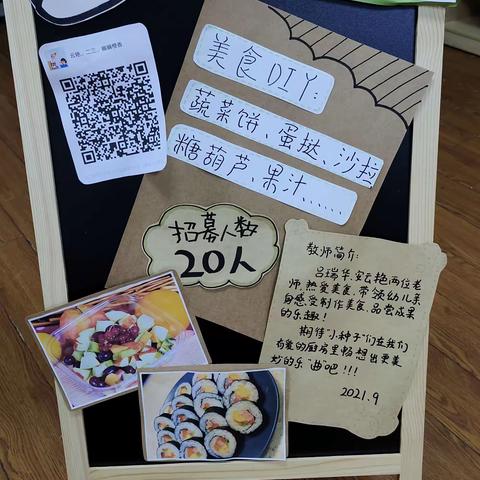 美食DIY:
蔬菜饼、蛋挞、沙拉
糖葫芦、果汁……
招募人数
20人
教师简介:
吕瑞华、宋云艳两位老
师,热爱美食,带领幼儿亲
自感受制作美食、品尝成果
的乐趣!
期待“小种子”们在我们
有爱的厨房里畅想出更美
妙的乐“曲”吧!!!
2021.9